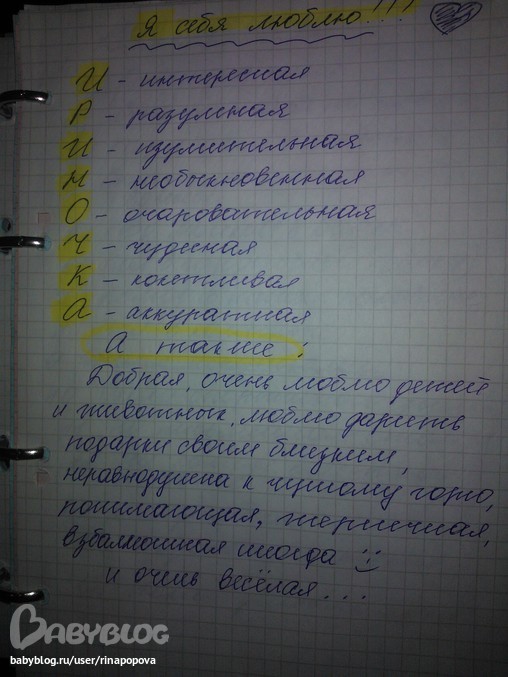 Я себя люблю!!!
И - интересная
Р - разумная
И - изумительная
Н - необыкновенная
О - очаровательная
Ч - чудесная
К - кокетливая
А - аккуратная
А также:
Добрая, очень люблю детей
и животных, люблю дарить
подарки своим близким,
неравнодушна к чужому горю,
понимающая, тепличная,
взбалмошная иногда :)
и очень весёлая...
BABYBLOG
babyblog.ru/user/rinapopova